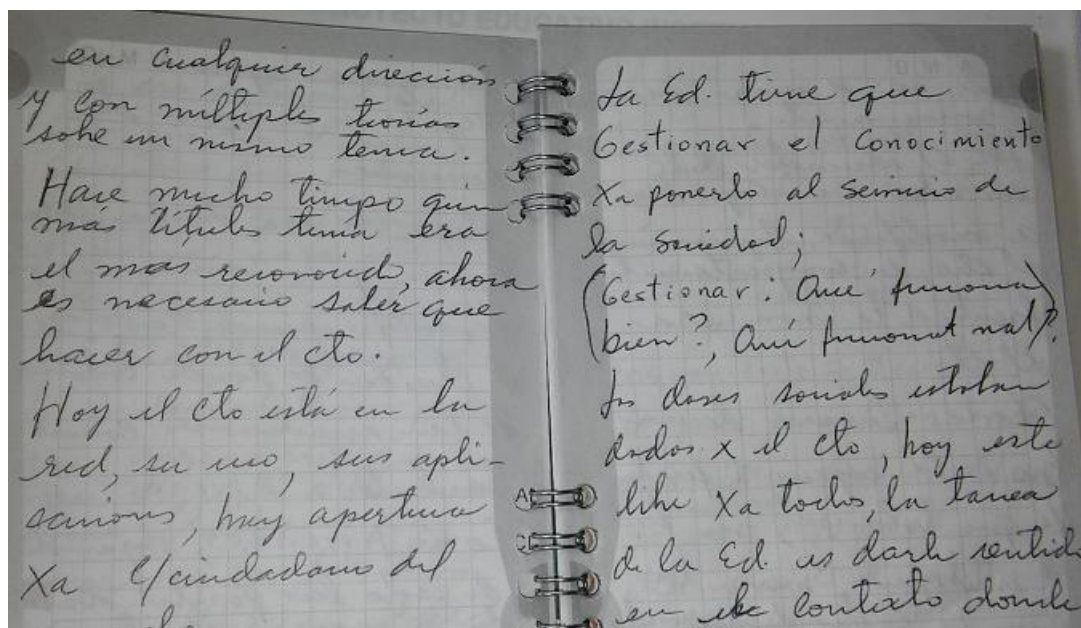 en cualquier dirección
y con múltiples teorías
sobre un mismo tema.
Hace mucho tiempo quien
más títulos tenía era
el mas reconocido, ahora
es necesario saber que
hacer con el cto.
Hoy el cto está en la
red, su uso, sus apli-
caciones, hay apertura
Xa c/ciudadano del
La Ed. tiene que
Gestionar el Conocimiento
Xa ponerlo al servicio de
la sociedad;
(Gestionar: Qué funciona
bien?, Qué funciona mal)?
las clases sociales estaban
dadas x el cto, hoy esta
libre Xa todos, la tarea
de la Ed. es darle sentido
en ese contexto donde